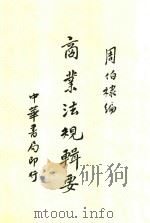 周伯棣編
商業法規輯要
中華書局印行